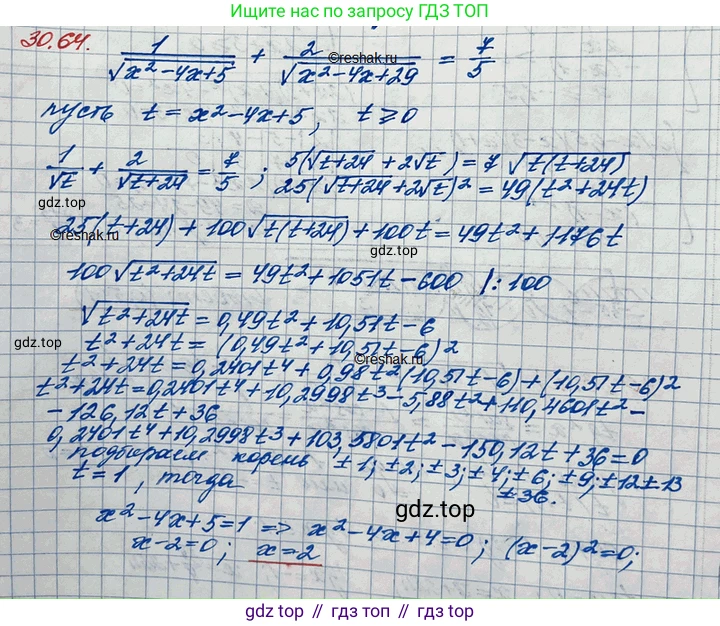 Ищите правильные ответы по запросу ГДЗ ТОП
30.64. 1/√(x²-4x+5) + 2/√(x²-4x+29) = 7/5
©reshak.ru
пусть t = x²-4x+5, t ⩾ 0
1/√t + 2/√(t+24) = 7/5 ; 5(√(t+24) + 2√t) = 7 √(t(t+24))
25(√(t+24)+2√t)² = 49(t²+24t)
gdz.top
25(t+24) + 100√(t(t+24)) + 100t = 49t²+1176t
©reshak.ru
gdz.top
100√(t²+24t) = 49t²+1051t-600 |:100
√(t²+24t) = 0,49t²+10,51t-6
t²+24t = (0,49t²+10,51t-6)²
t²+24t = 0,2401t⁴+0,98t²(10,51t-6)+(10,51t-6)²
t²+24t=0,2401t⁴+10,2998t³-5,88t²+110,4601t²-
-126,12t+36
0,2401t⁴+10,2998t³+103,5801t²-150,12t+36=0
подбираем корень ±1; ±2; ±3; ±4; ±6; ±9; ±12 ±13
±36.
t=1, тогда
gdz.top
x²-4x+5=1 => x²-4x+4=0; (x-2)²=0;
x-2=0; x=2
gdz.top // гдз.топ // gdz.top // гдз.топ // gdz.top